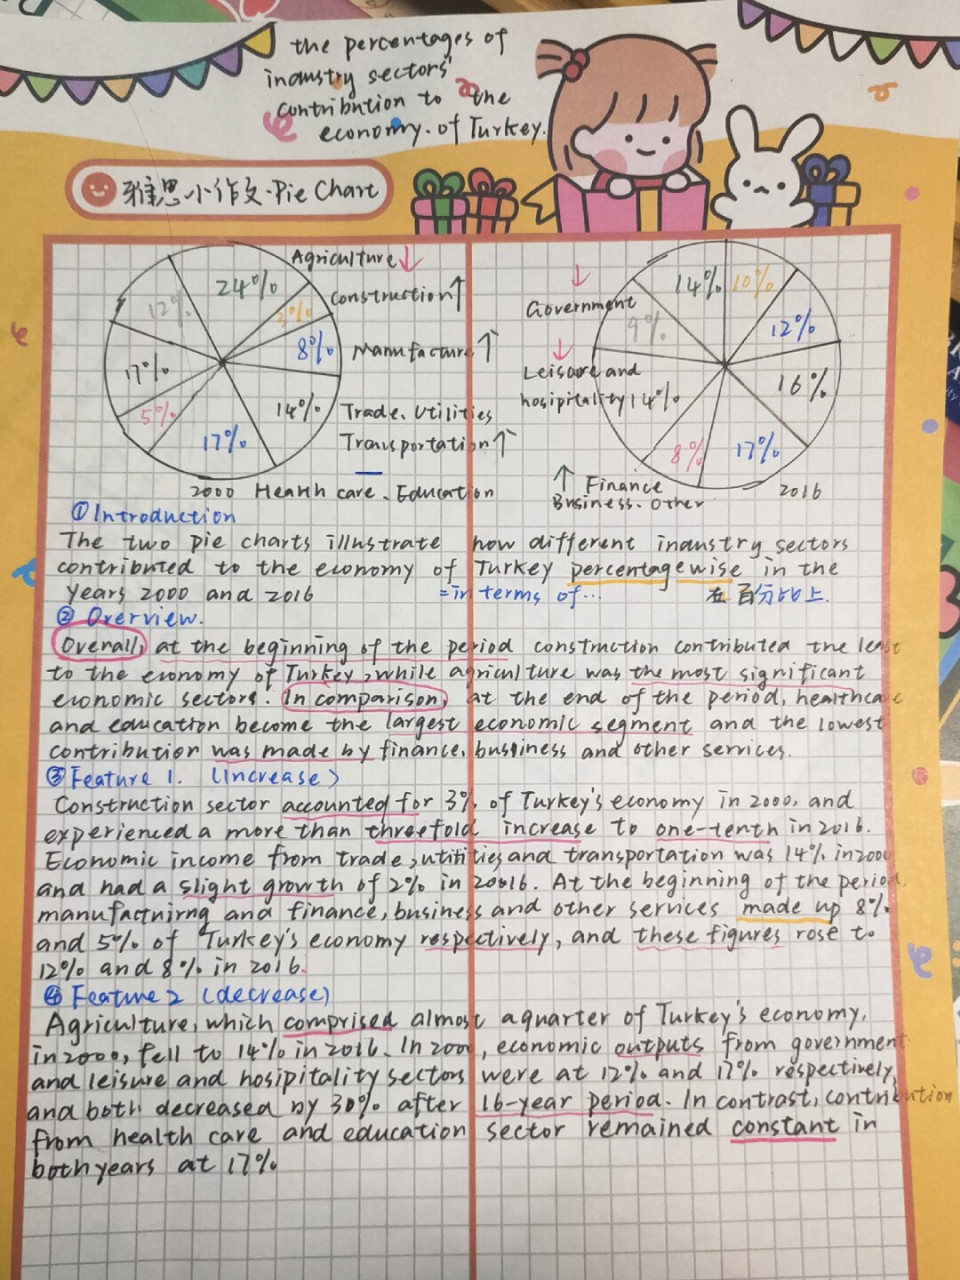 the percentages of
industry sectors'
contribution to the
economy. of Turkey.
雅思小作文·Pie Chart
24%
3%
8%
14%
17%
5%
17%
12%
Agriculture ↓
Construction ↑
Manufacture ↑
Trade、Utilities
Transportation ↑
2000 Health care、Education
↓
Government
↓
Leisure and
hosipitality
↑ Finance
Business、Other
14%
10%
12%
16%
17%
8%
14%
9%
2016
①Introduction
The two pie charts illustrate how different industry sectors
contributed to the economy of Turkey percentagewise in the
years 2000 and 2016 =in terms of... 在百分比上.
② Overview.
Overall, at the beginning of the period construction contributed the least
to the economy of Turkey, while agriculture was the most significant
economic sectors. In comparison, at the end of the period, healthcare
and education become the largest economic segment and the lowest
contribution was made by finance, business and other services.
③Feature 1. (Increase)
Construction sector accounted for 3% of Turkey's economy in 2000, and
experienced a more than threefold increase to one-tenth in 2016.
Economic income from trade, utilities and transportation was 14% in 2000
and had a slight growth of 2% in 2016. At the beginning of the period,
manufactnirng and finance, business and other services made up 8%
and 5% of Turkey's economy respectively, and these figures rose to
12% and 8% in 2016.
④ Feature 2 (decrease)
Agriculture, which comprised almost a quarter of Turkey's economy,
in 2000, fell to 14% in 2016. In 2000, economic outputs from government
and leisure and hosipitality sectors were at 12% and 17% respectively,
and both decreased by 30% after 16-year period. In contrast, contribution
from health care and education sector remained constant in
both years at 17%